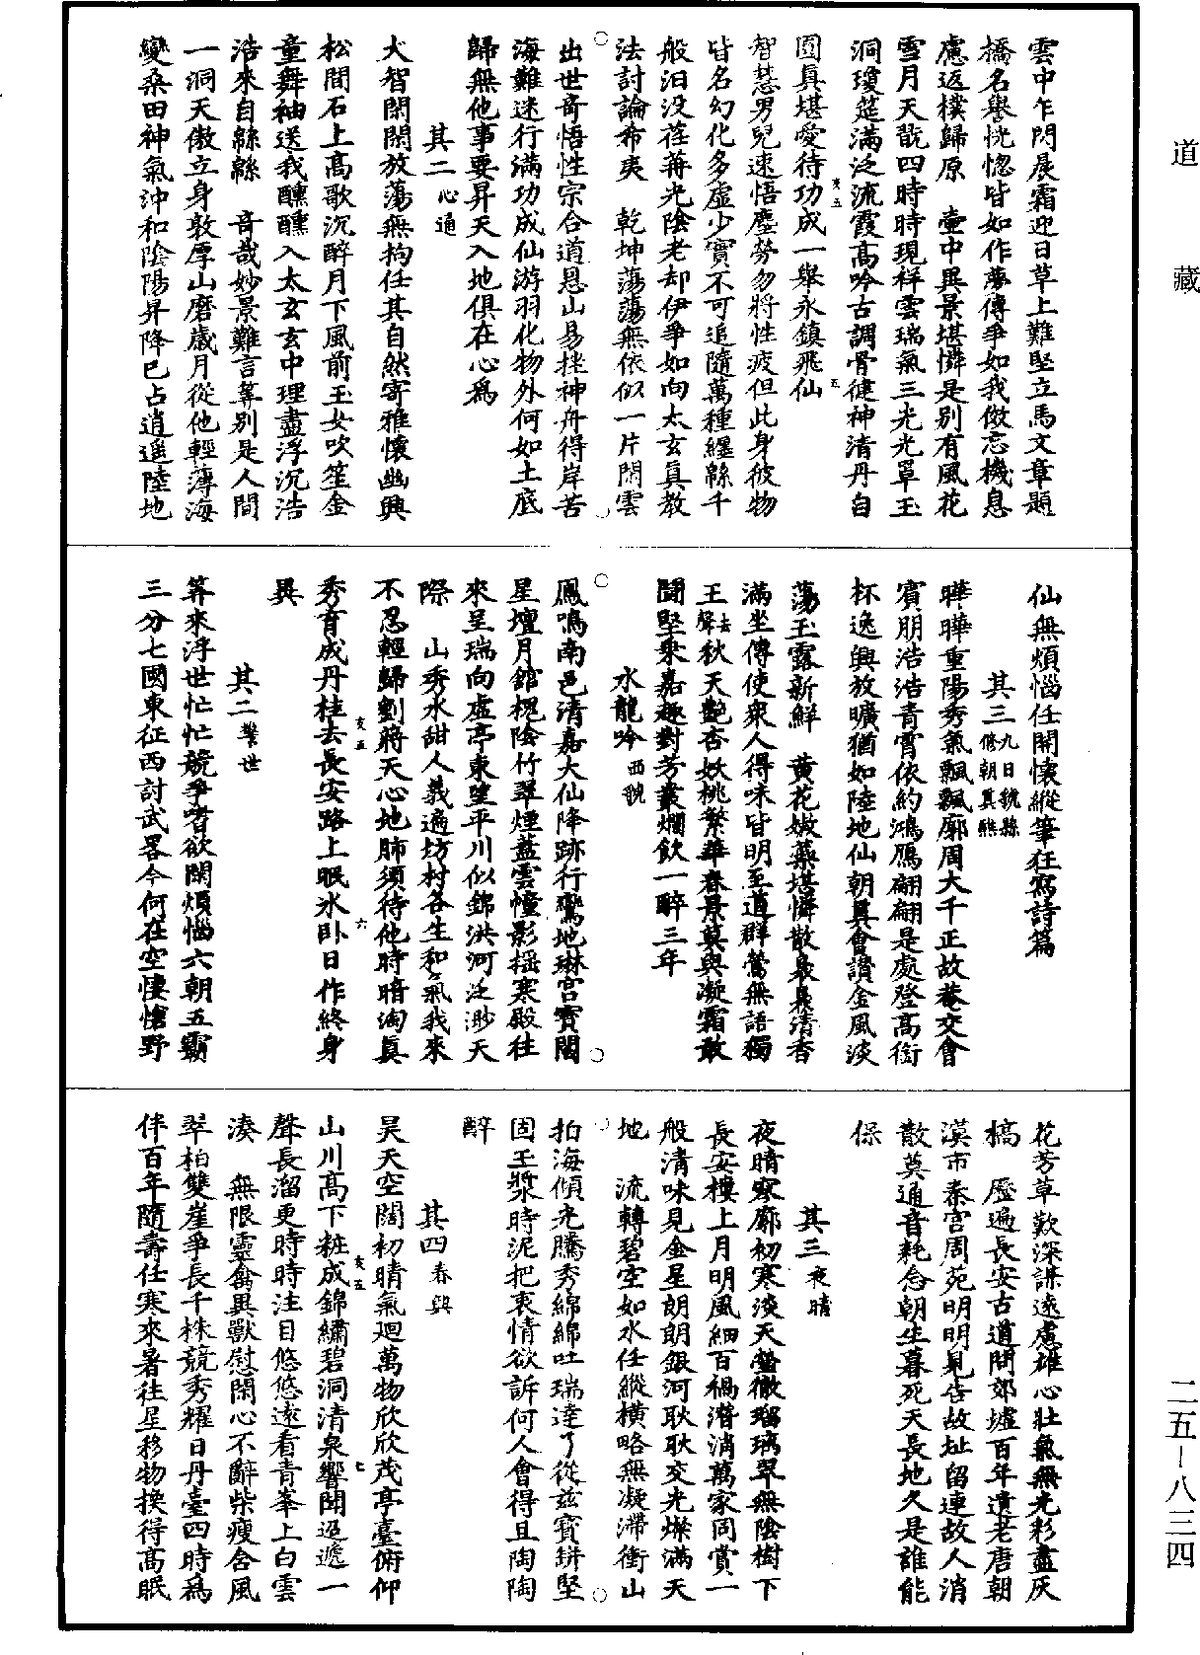 道藏
雲中乍閃晨霜迎日草上難堅立馬文章題
橋名譽恍惚皆如作夢傳爭如我傚忘機息
慮返樸歸原　壺中異景堪憐是別有風花
雪月天既四時時現祥雲瑞氣三光光罩玉
洞瓊筵滿泛流霞高吟古調骨健神清丹自
圓真堪愛待功成一舉永鎮飛仙
智慧男兒速悟塵勞勿將性疲但此身彼物
皆名幻化多虛少實不可追隨萬種纏綿千
般汨没荏苒光陰老却伊爭如向太玄真教
法討論希夷　乾坤蕩蕩無依似一片閑雲
出世奇悟性宗合道恩山易挫神舟得岸苦
海難迷行滿功成仙游羽化物外何如土底
歸無他事要昇天入地俱在心為
其二心通
大智閑閑放蕩無拘任其自然寄雅懷幽興
松間石上高歌沉醉月下風前玉女吹笙金
童舞袖送我醺醺入太玄玄中理盡浮沉浩
浩來自綿綿　奇哉妙景難言筭別是人間
一洞天傲立身敦厚山磨歲月從他輕薄海
變桑田神氣沖和陰陽昇降已占逍遥陸地
仙無煩惱任開懷縱筆狂寫詩篇
其三九日虢縣修朝真醮
曄曄重陽秀氣飄飄廓周大千正故菴交會
賓朋浩浩青霄依約鴻鴈翩翩是處登高銜
杯逸興放曠猶如陸地仙朝真會讚金風淡
蕩玉露新鮮　黃花嫩蘂堪憐散裊裊清香
滿坐傳使衆人得味皆明至道群鶯無語獨
王去聲秋天艷杏妖桃繁華春景莫與凝霜敢
鬪堅乘嘉趣對芳叢爛飲一醉三年
水龍吟西虢
鳳鳴南邑清嘉大仙降跡行鸞地琳宫寶閣
星壇月館槐陰竹翠煙藍雲幢影摇寒殿往
來呈瑞向虛亭東望平川似錦洪河泛渺天
際　山秀水甜人義遍坊村各生和氣我來
不忍輕歸劉蔣天心地肺須待他時暗淘真
秀育成丹桂去長安路上眠氷卧日作終身
異
其二警世
筭來浮世忙忙競爭嗜欲閑煩惱六朝五霸
三分七國東征西討武畧今何在空悽愴野
花芳草歎深謀遠慮雄心壯氣無光彩盡灰
槁　歷遍長安古道問郊墟百年遺老唐朝
漢市秦宫周苑明明見告故址留連故人消
散莫通音耗念朝生暮死天長地久是誰能
保
其三夜晴
夜晴寥廓初寒淡天瑩徹瑠璃翠無陰樹下
長安樓上月明風細百禍潛消萬家同賞一
般清味見金星朗朗銀河耿耿交光燦滿天
地　流轉碧空如水任縱横略無凝滯衝山
拍海傾光騰秀綿綿吐瑞達了從兹寳缾堅
固玉漿時泥把衷情欲訴何人會得且陶陶
醉
其四春興
昊天空闊初晴氣迴萬物欣欣茂亭臺俯仰
山川高下粧成錦繡碧洞清泉響聞迢遞一
聲長溜更時時注目悠悠遠看青峯上白雲
湊　無限靈禽異獸慰閑心不辭柴瘦含風
翠柏雙崖爭長千株競秀耀日丹臺四時為
伴百年隨壽任寒來暑往星移物換得高眠
二五－八三四